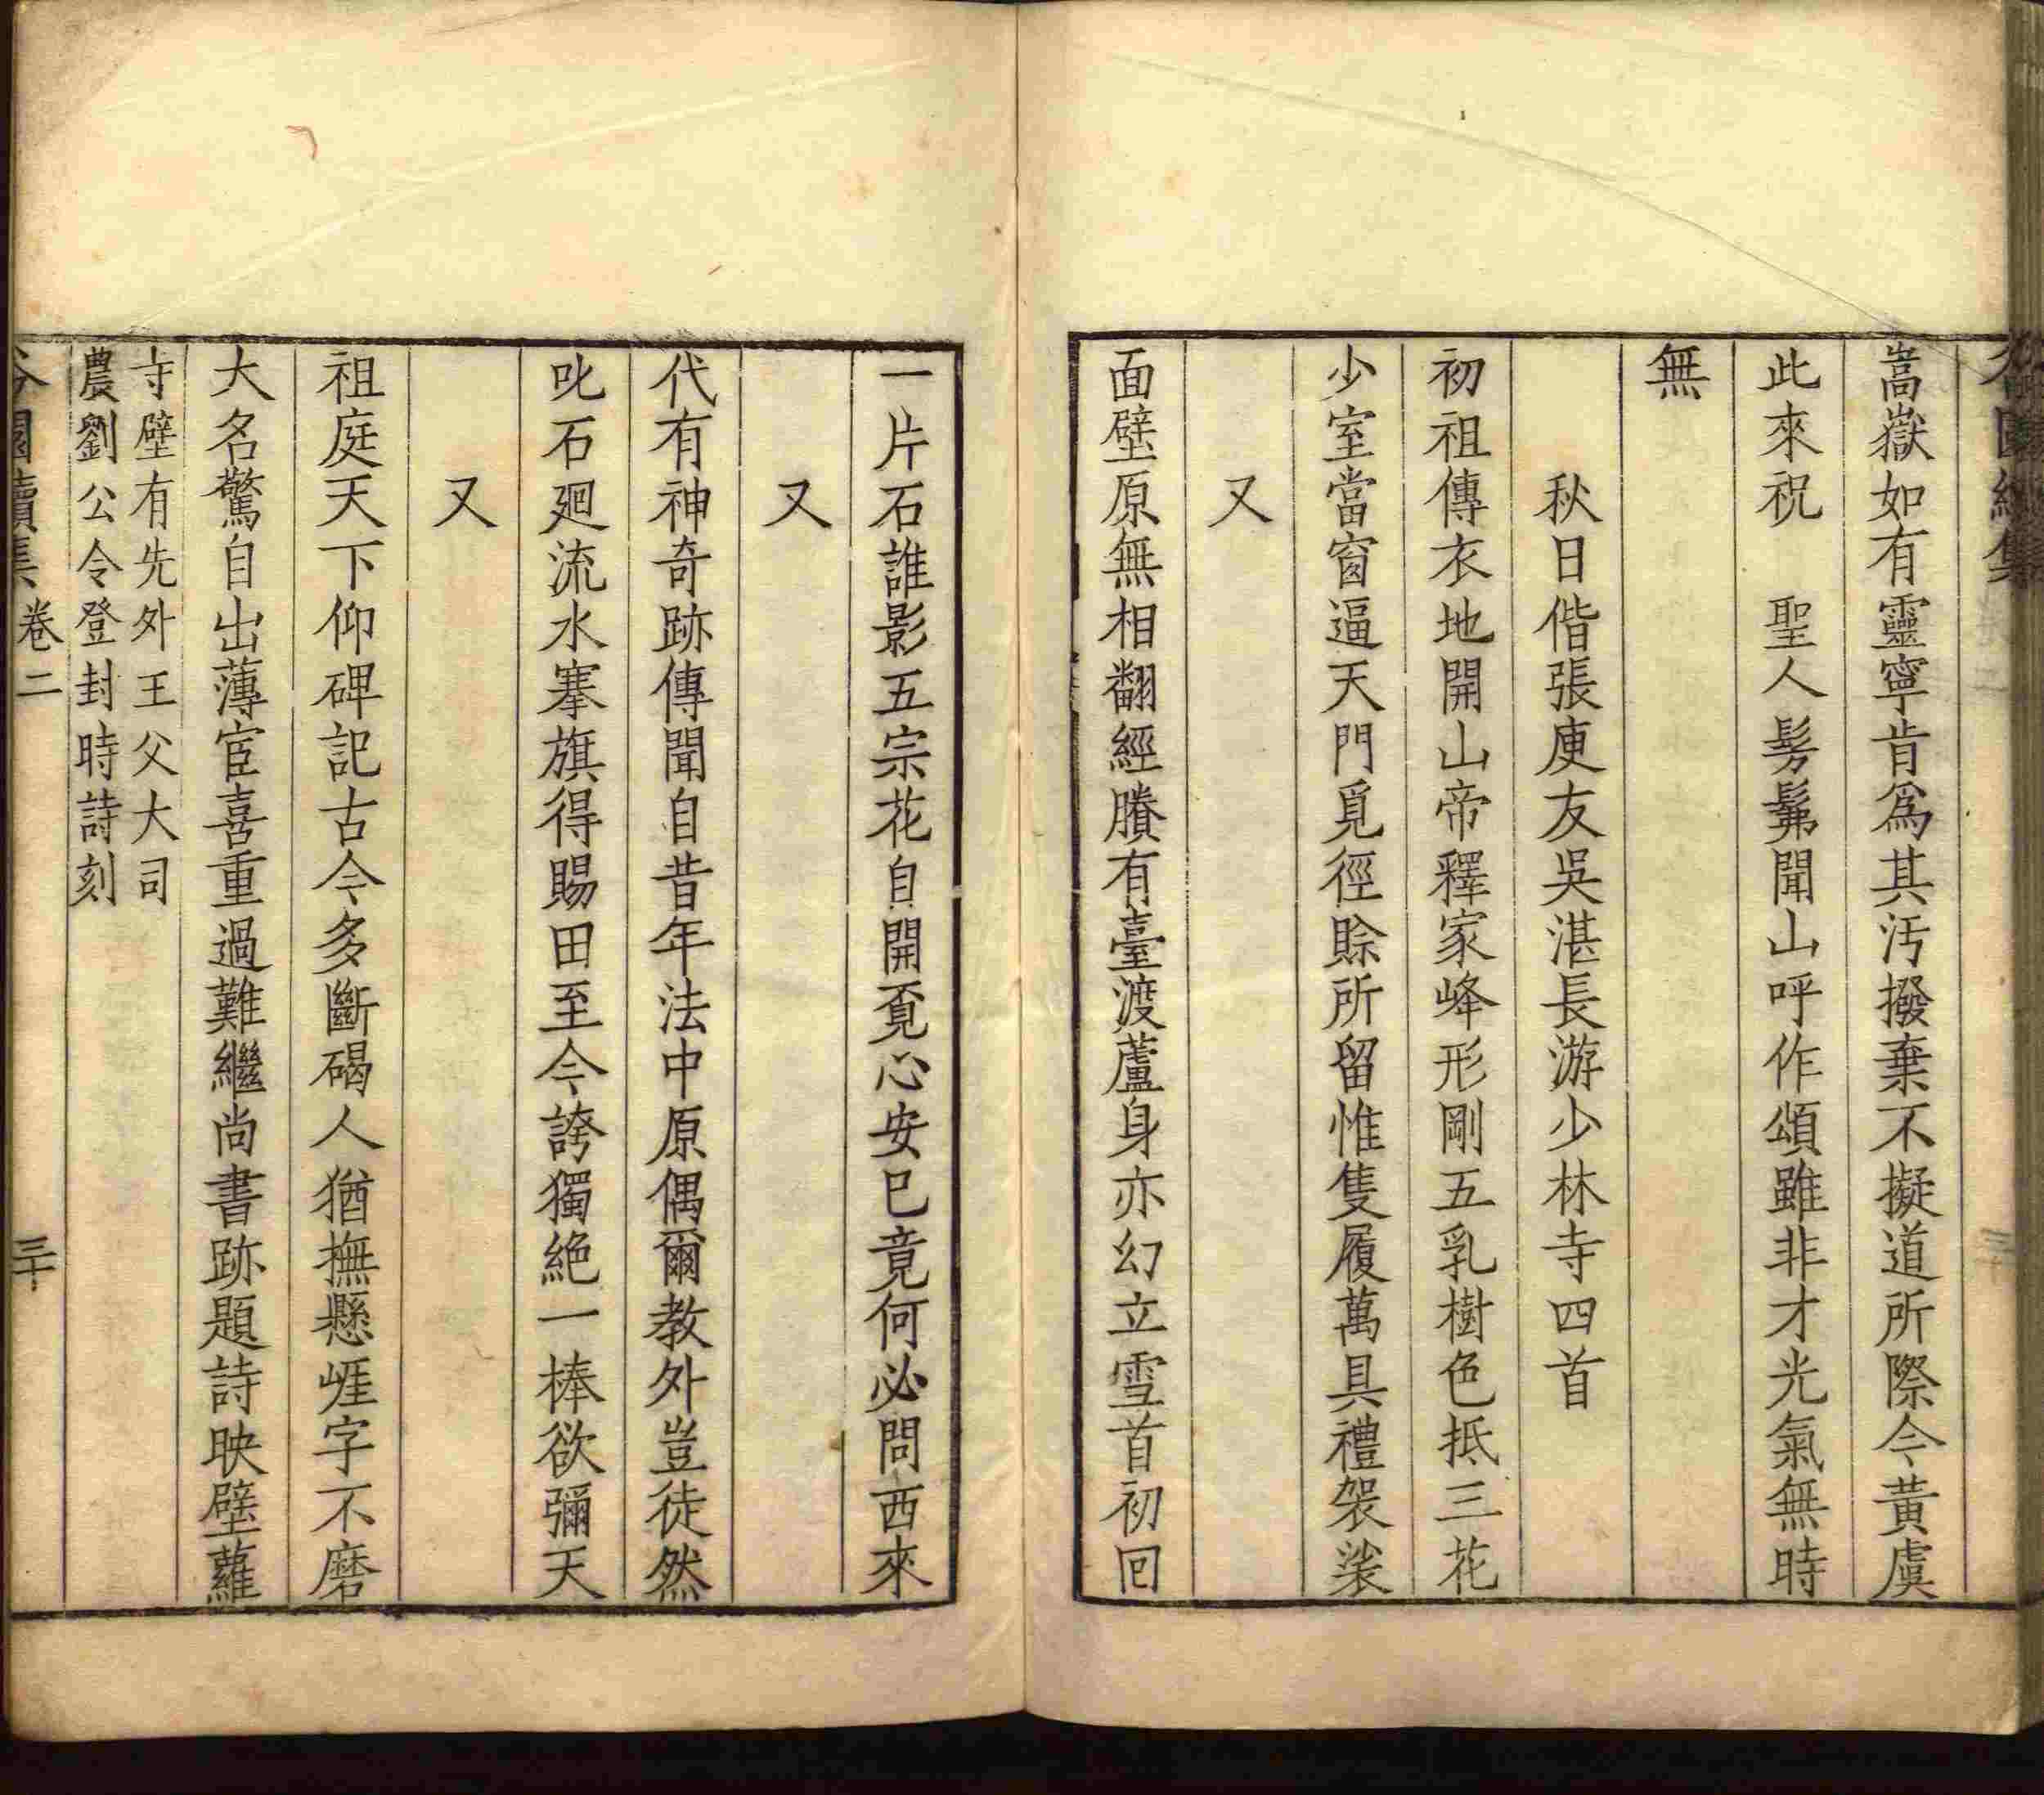 嵩嶽如有靈寧肯爲其汚撥棄不擬道所際今黃虞
此來祝　聖人髣髴聞山呼作頌雖非才光氣無時
無
秋日偕張庾友吳湛長游少林寺四首
初祖傳衣地開山帝釋家峰形剛五乳樹色抵三花
少室當窗逼天門覓徑賒所留惟隻履萬具禮袈裟
又
面壁原無相翻經賸有臺渡蘆身亦幻立雪首初回
一片石誰影五宗花自開覔心安已竟何必問西來
又
代有神奇跡傳聞自昔年法中原偶爾教外豈徒然
叱石廻流水搴旗得賜田至今誇獨絕一棒欲彌天
又
祖庭天下仰碑記古今多斷碣人猶撫懸崕字不磨
大名驚自出薄宦喜重過難繼尚書跡題詩映壁蘿
寺壁有先外王父大司
農劉公令登封時詩刻
園續集 卷二 三十